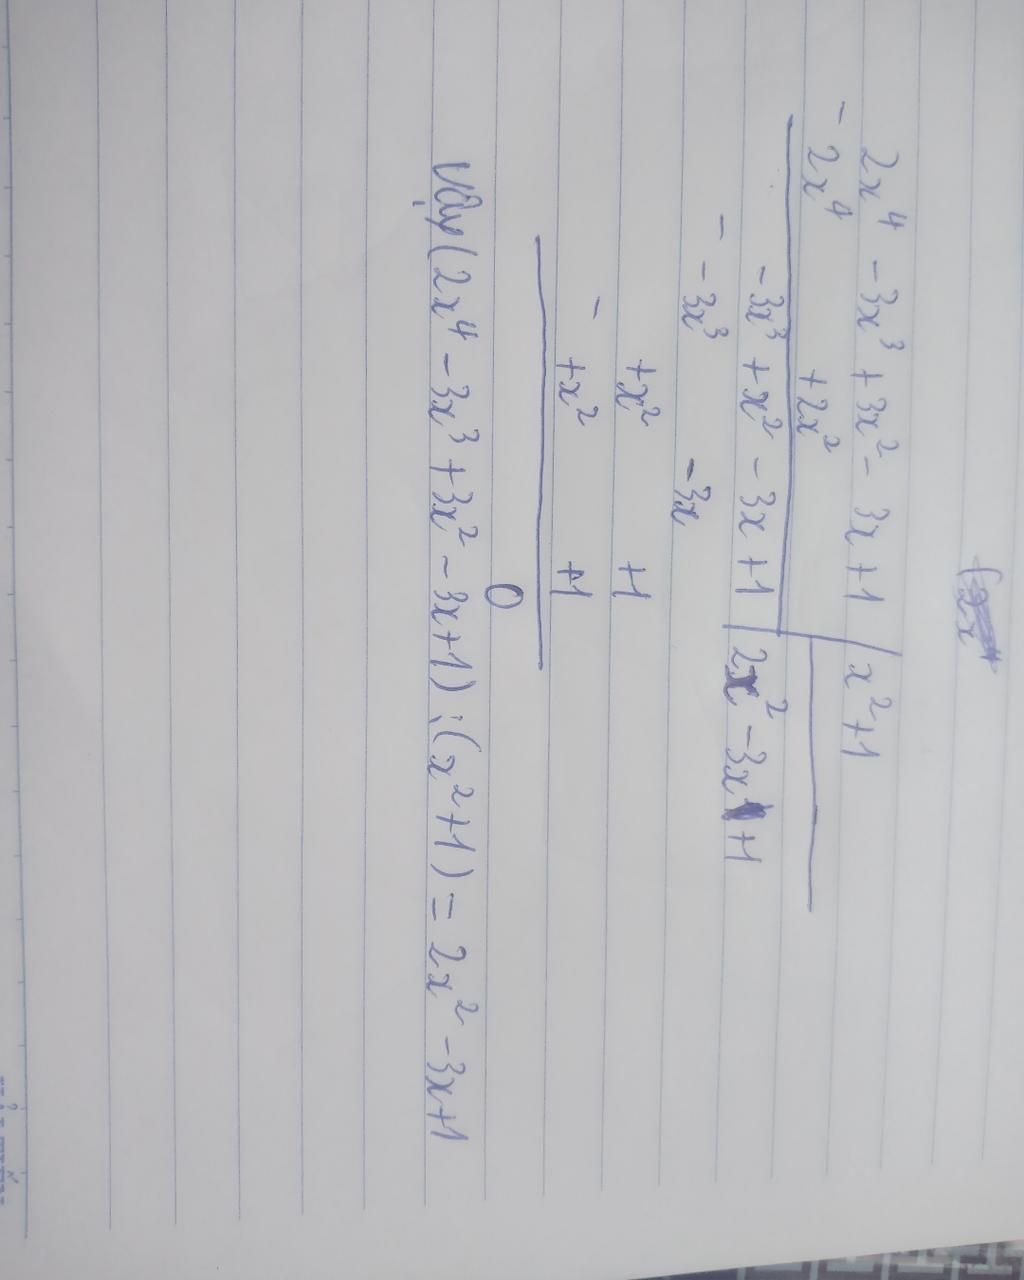 2x⁴ - 3x³ + 3x² - 3x + 1 | x² + 1
- 2x⁴ + 2x²
- 3x³ + x² - 3x + 1 | 2x² - 3x + 1
- - 3x³ - 3x
+ x² + 1
- + x² + 1
0
Vậy (2x⁴ - 3x³ + 3x² - 3x + 1) : (x² + 1) = 2x² - 3x + 1